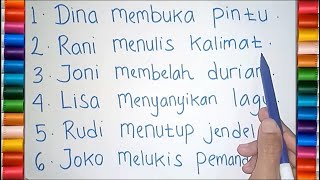 1. Dina membuka pintu.
2. Rani menulis kalimat.
3. Joni membelah durian.
4. Lisa menyanyikan lagu.
5. Rudi menutup
6. Joko melukis